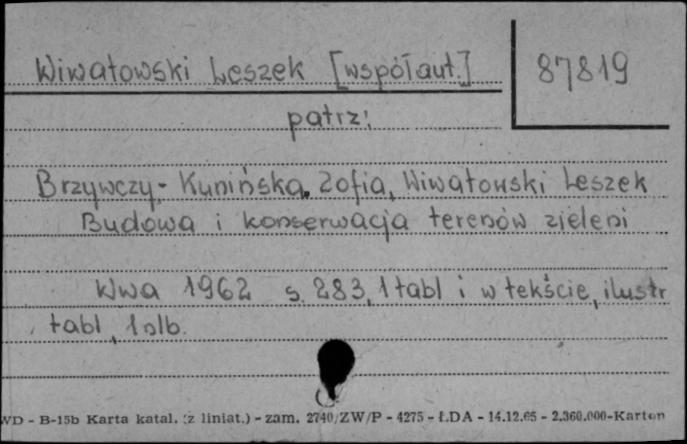 Wiwatowski Leszek [współaut.] 87819
patrz:
Brzywczy-Kunińska, Zofia, Wiwatowski Leszek
Budowa i konserwacja terenów zieleni
Wwa 1962 s. 283, 1 tabl i w tekście, ilustr
tabl, 1 alb.
WD - B-15b Karta katal. (z liniat.) - zam. 2740/ZW/P - 4275 - ŁDA - 14.12.65 - 2.360.000-Karton